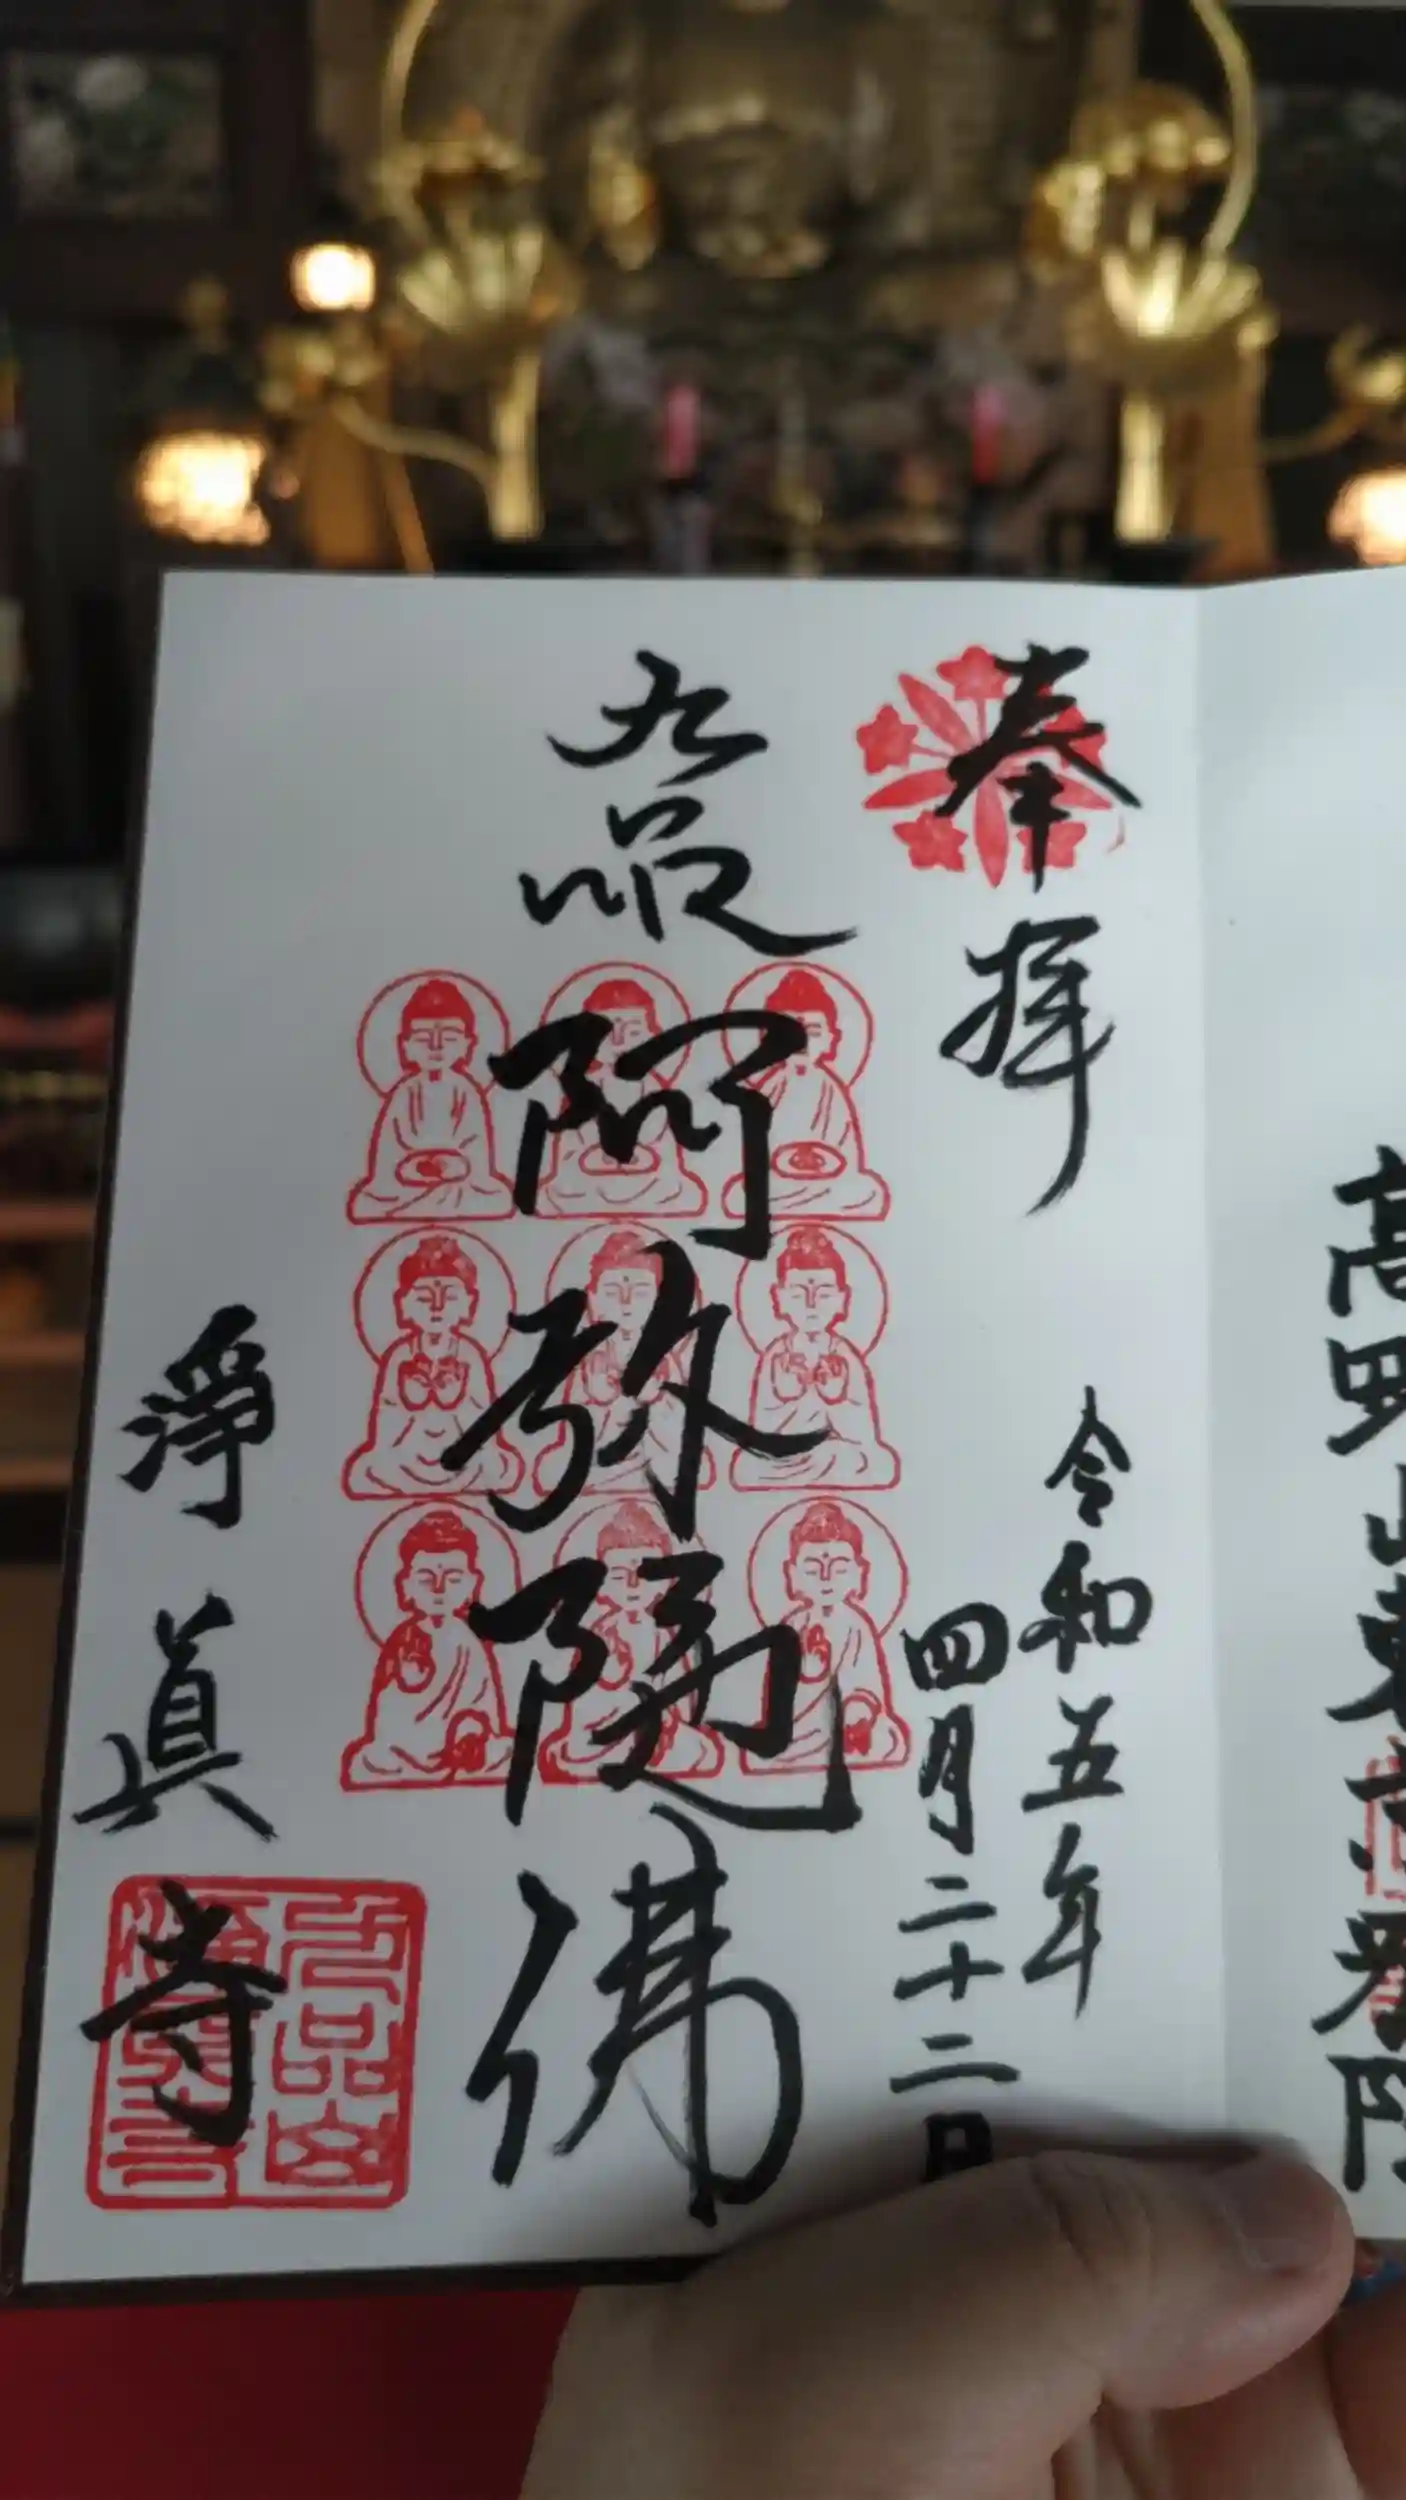 高野山東京別院
奉拝
令和五年
四月二十二日
九品
阿弥陀佛
淨眞寺
九品山